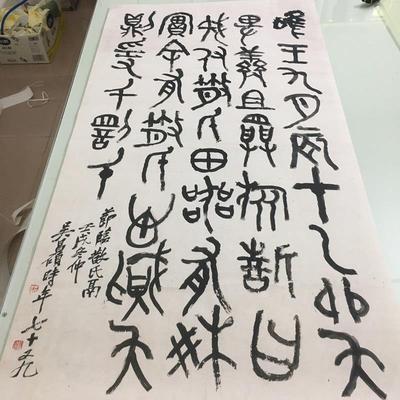 唯王九月辰才乙卯夨
卑義且旅誓曰
我既付散氏田器有爽
實余有散氏心賊
則爰千罰千
節臨散氏鬲
壬戌冬仲
吳昌碩時年七十九